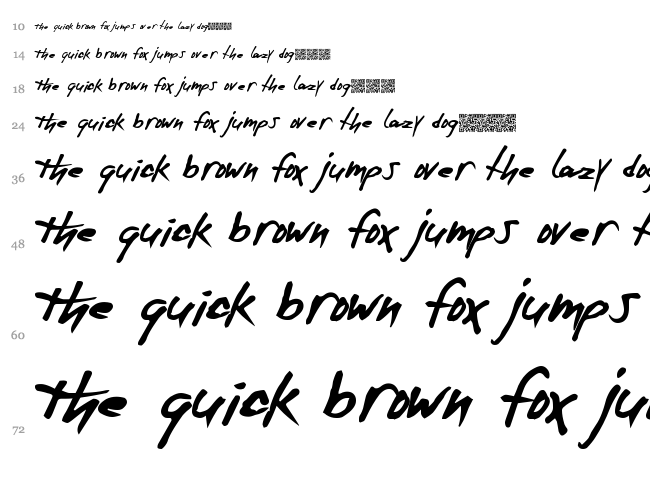 10 the quick brown fox jumps over the lazy dog
14 the quick brown fox jumps over the lazy dog
18 the quick brown fox jumps over the lazy dog
24 the quick brown fox jumps over the lazy dog
36 the quick brown fox jumps over the lazy dog
48 the quick brown fox jumps over t
60 the quick brown fox jumps
72 the quick brown fox ju